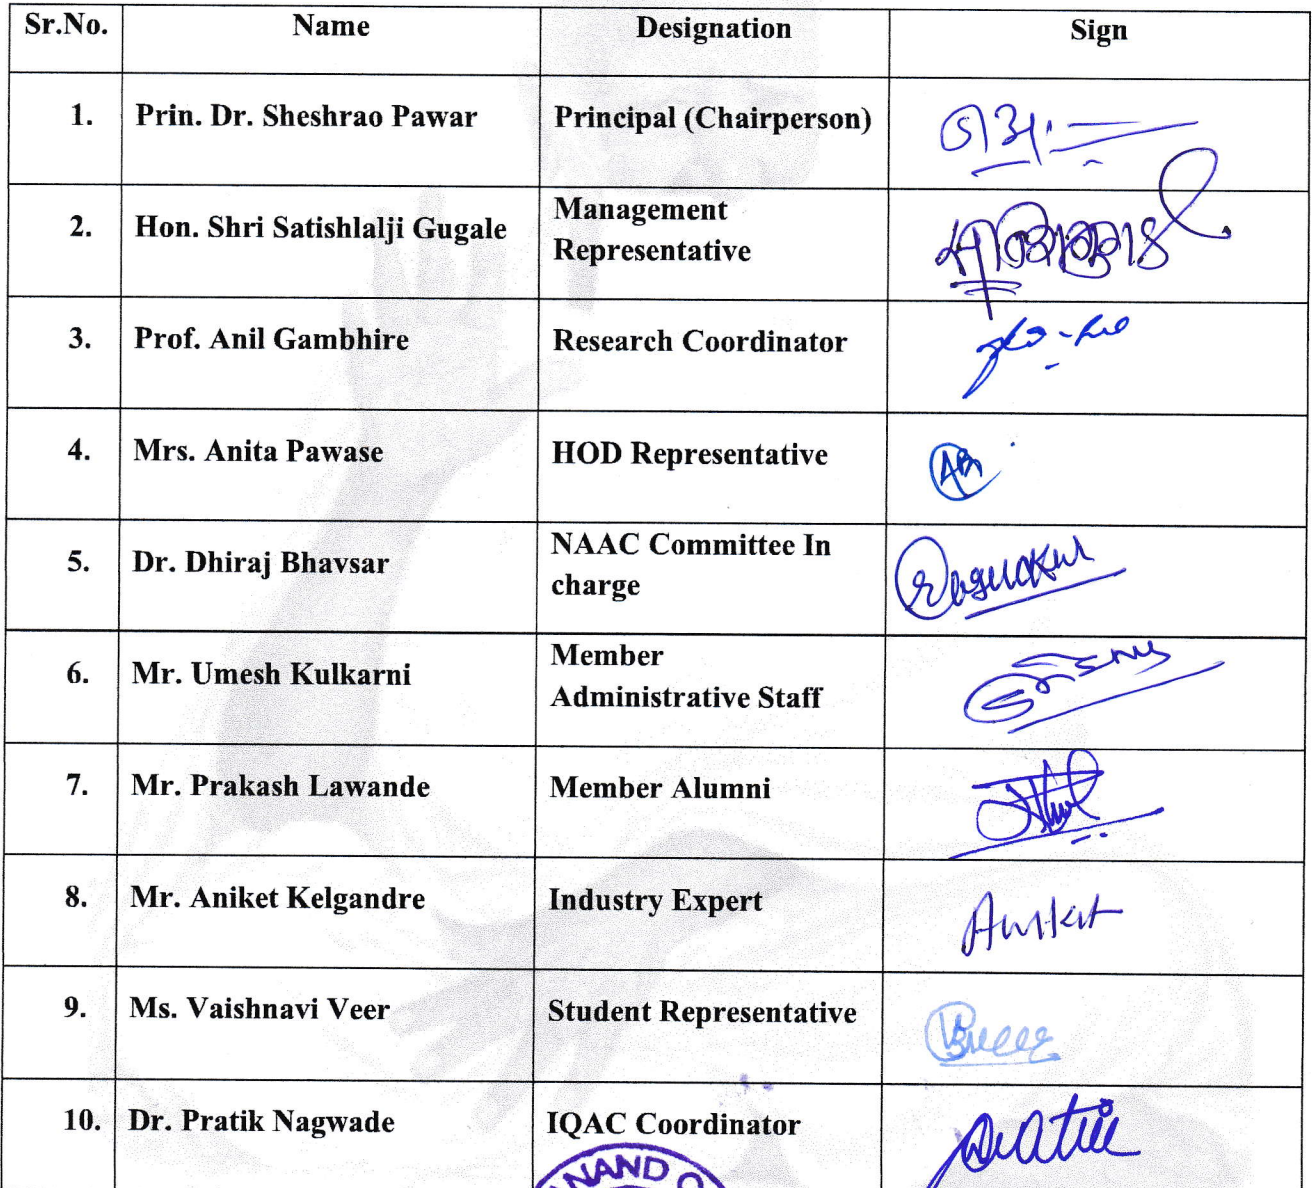 Sr.No. Name Designation Sign
1. Prin. Dr. Sheshrao Pawar Principal (Chairperson)
2. Hon. Shri Satishlalji Gugale Management
Representative
3. Prof. Anil Gambhire Research Coordinator
4. Mrs. Anita Pawase HOD Representative
5. Dr. Dhiraj Bhavsar NAAC Committee In
charge
6. Mr. Umesh Kulkarni Member
Administrative Staff
7. Mr. Prakash Lawande Member Alumni
8. Mr. Aniket Kelgandre Industry Expert Aniket
9. Ms. Vaishnavi Veer Student Representative
10. Dr. Pratik Nagwade IQAC Coordinator